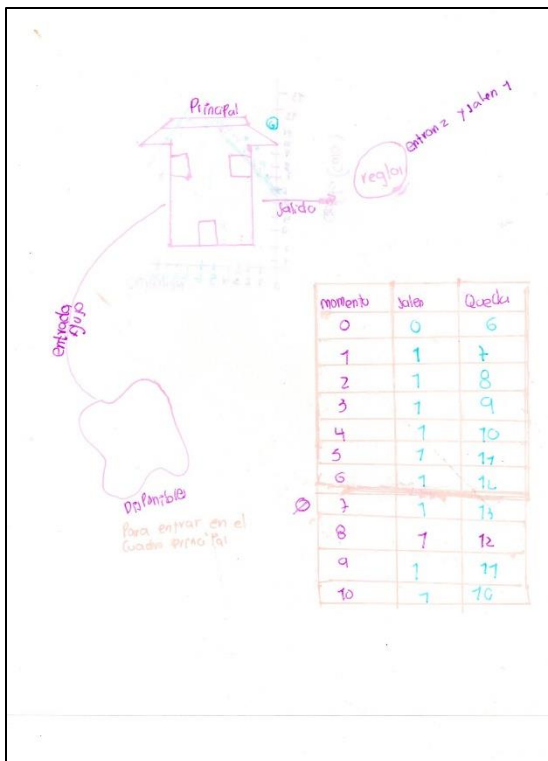 Principal
entran 2 y salen 1
regla
salida
entrada
flujo
Disponible
Para entrar en el
Cuadro principal
momento salen Queda
0 0 6
1 1 7
2 1 8
3 1 9
4 1 10
5 1 11
6 1 12
7 1 13
8 1 12
9 1 11
10 1 10